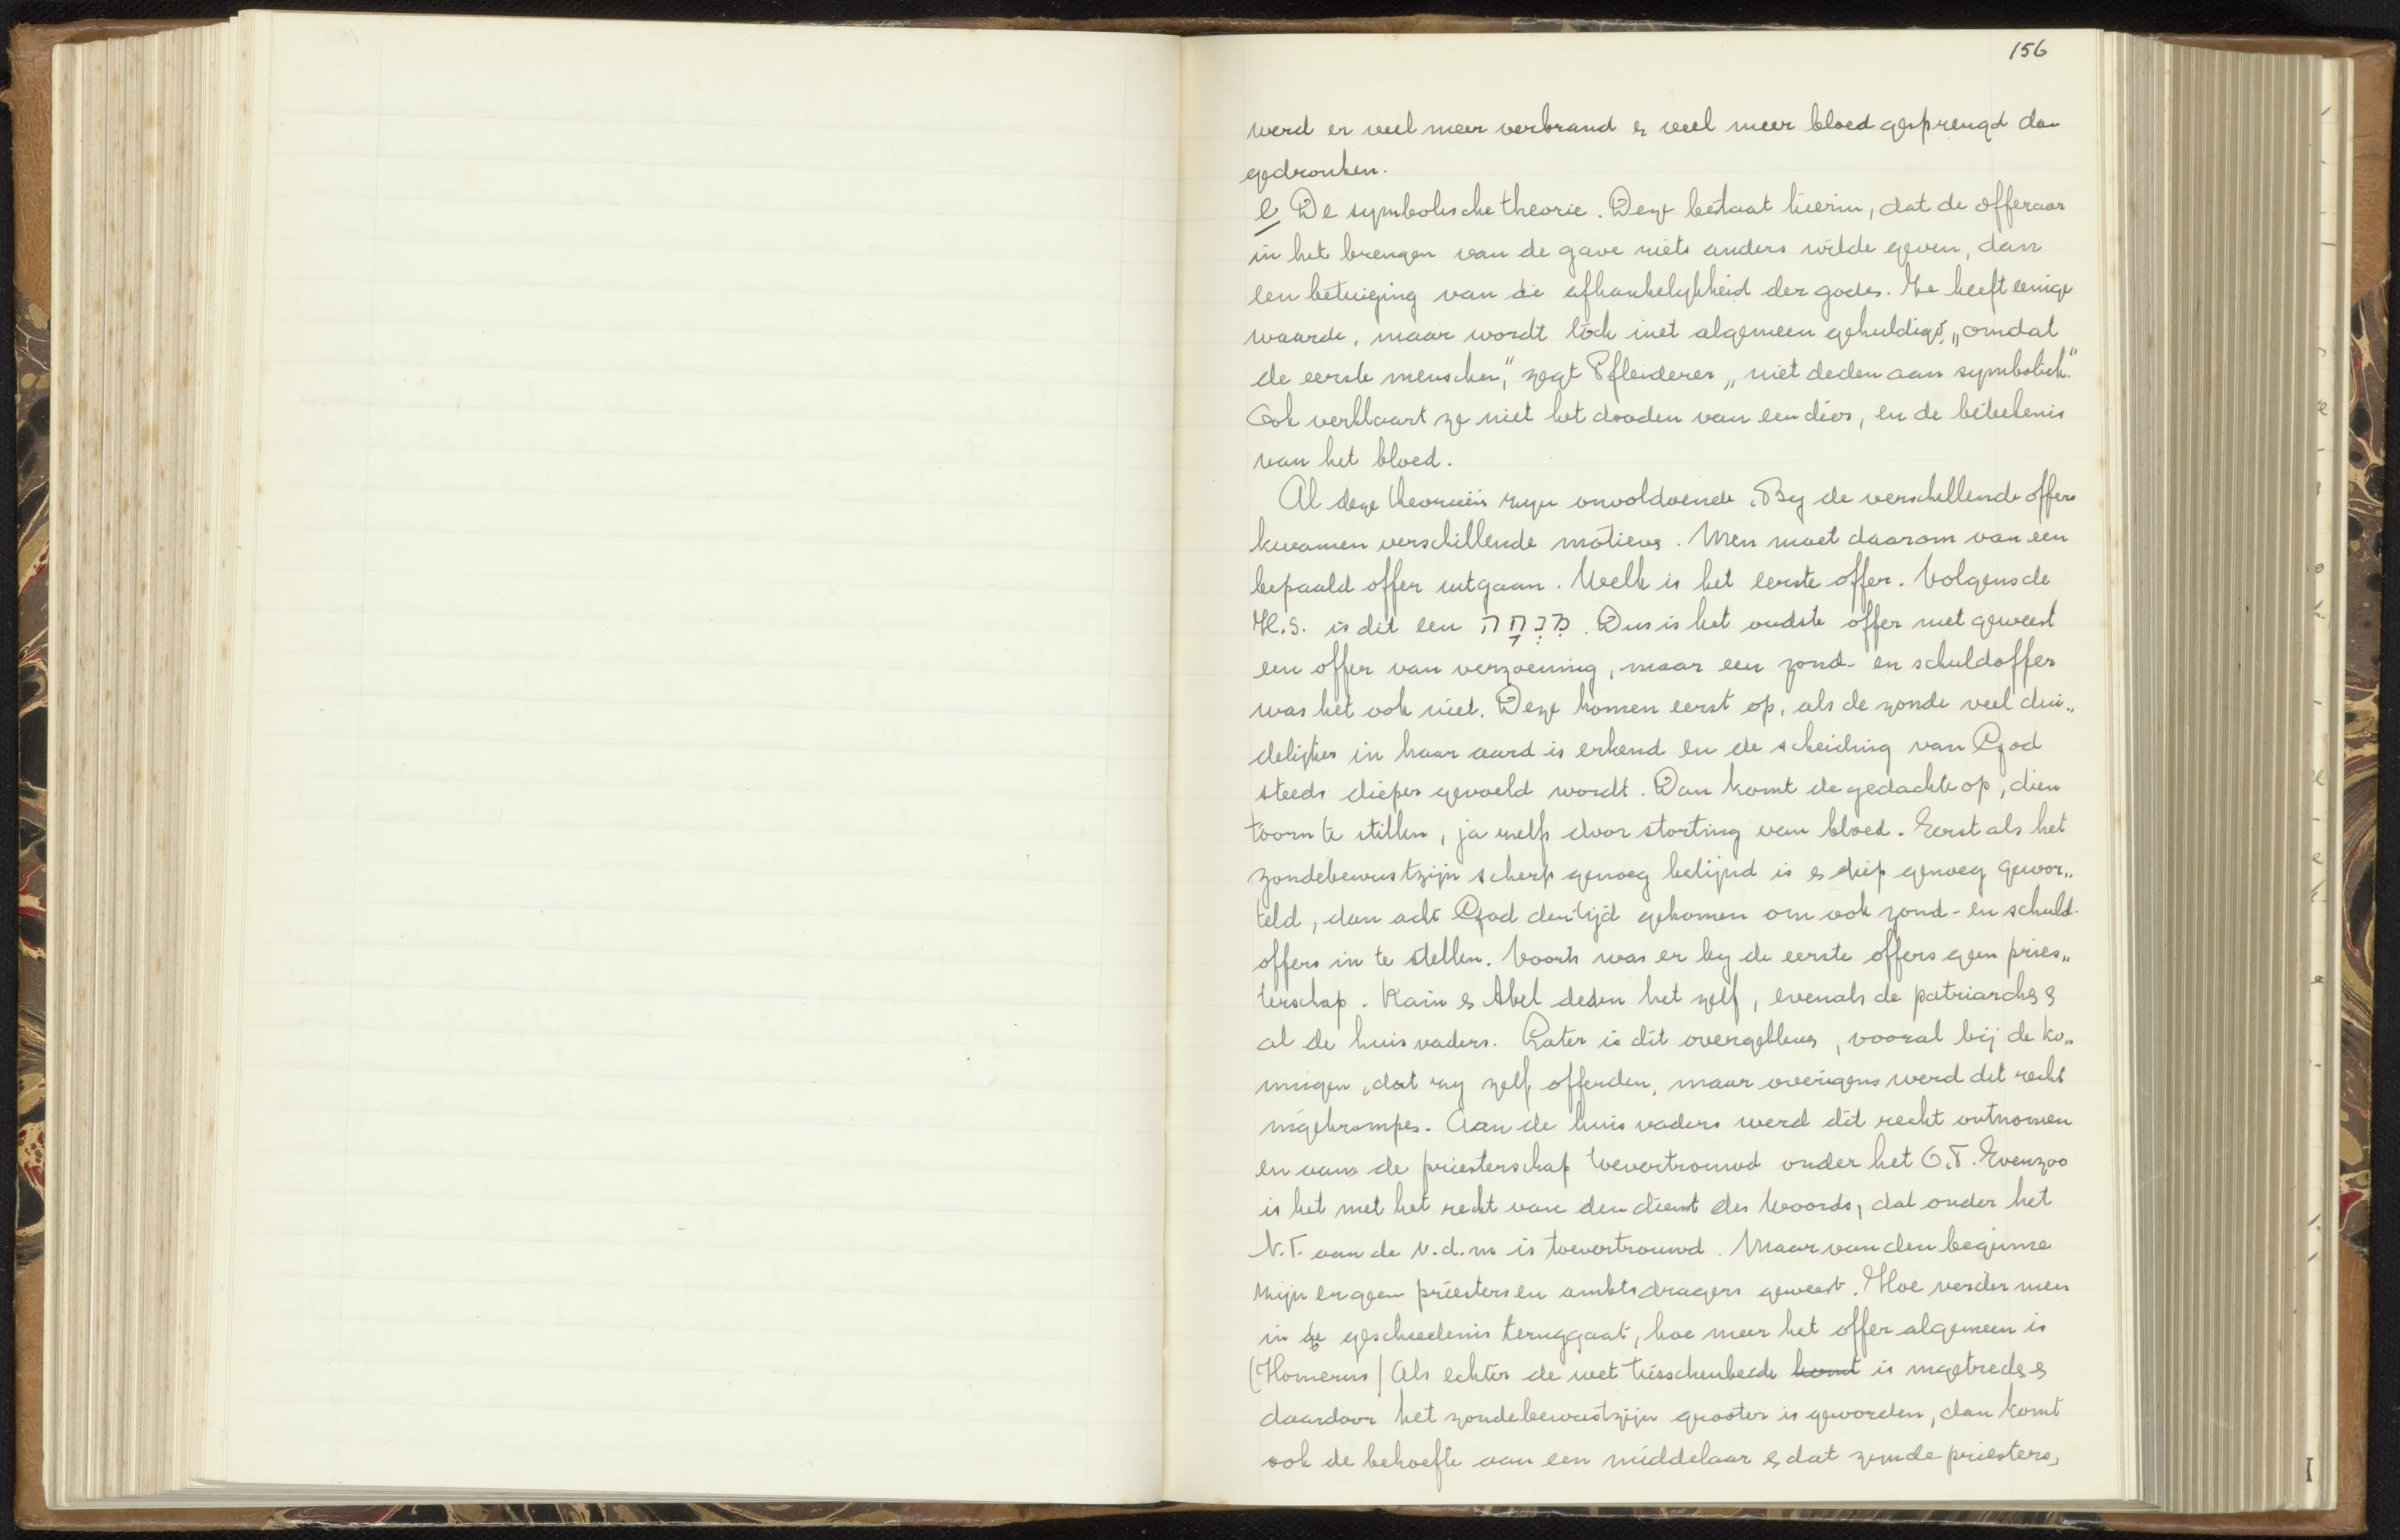 156
werd er veel meer verbrand & veel meer bloed gesprengd dan
gedronken.
e De symbolische theorie. Deze bestaat hierin, dat de offeraar
in het brengen van de gave niets anders wilde geven, dan
een betuiging van de afhankelykheid der godes. Ze heeft eenige
waarde, maar wordt toch niet algemeen gehuldigd, „omdat
de eerste menschen," zegt Pfleiderer „niet deden aan symboliek."
Ook verklaart ze niet het dooden van een dier, en de beteekenis
van het bloed.
Al deze theorieën zyn onvoldoende. By de verschillende offers
kwamen verschillende motieves. Men moet daarom van een
bepaald offer uitgaan. Welk is het eerste offer. Volgens de
H.S. is dit een מִנְחָה. Dus is het oudste offer niet geweest
een offer van verzoening, maar een zond- en schuldoffer
was het ook niet. Deze komen eerst op, als de zonde veel dui„
delijker in haar aard is erkend en de scheiding van God
steeds dieper gevoeld wordt. Dan komt de gedachte op, dien
toorn te stillen, ja zelfs door storting van bloed. Eerst als het
zondebewustzijn scherp genoeg belijnd is & diep genoeg gewor„
teld, dan acht God den tijd gekomen om ook zond- en schuld-
offers in te stellen. Voorts was er by de eerste offers geen pries„
terschap. Kain & Abel deden het zelf, evenals de patriarches &
al de huisvaders. Later is dit overgebleves, vooral bij de ko„
ningen, dat zy zelf offerden, maar overigens werd dit recht
ingekrompes. Aan de huisvaders werd dit recht ontnomen
en aan de priesterschap toevertrouwd onder het O.T. Evenzoo
is het met het recht van den dienst des Woords, dat onder het
N.T. aan de v.d.m is toevertrouwd. Maar van den beginne
zijn er geen priesters en ambtsdragers geweest. Hoe verder men
in de geschiedenis teruggaat, hoe meer het offer algemeen is
(Homerus) Als echter de wet tusschenbeide komt is ingetredes &
daardoor het zondebewustzijn grooter is geworden, dan komt
ook de behoefte aan een middelaar & dat zyn de priesters,